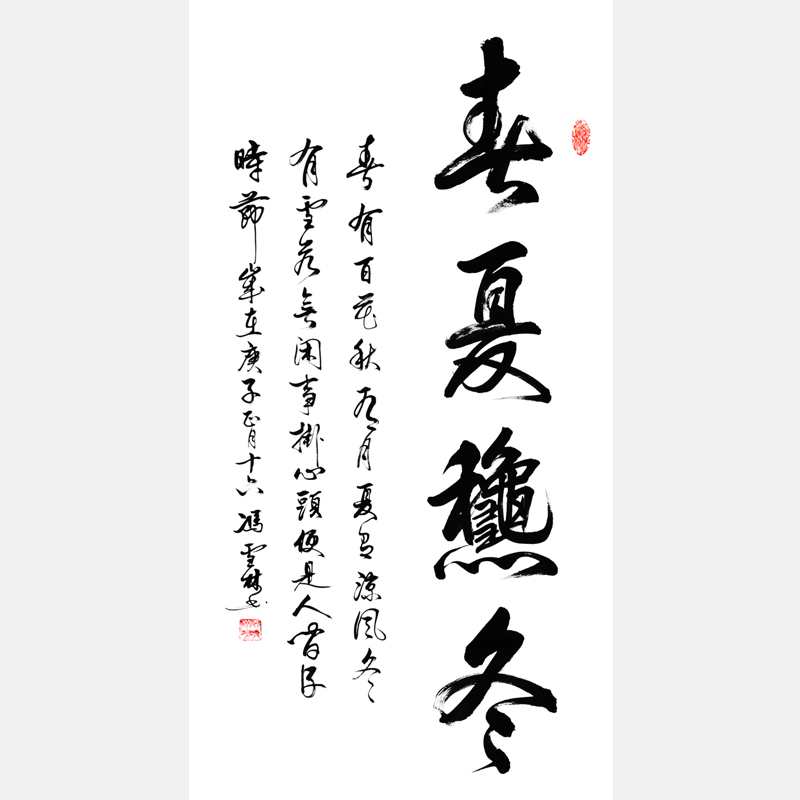 春夏龝冬
春有百花秋有月夏有涼風冬
有雪若無闲事掛心頭便是人间好
時節歲在庚子正月十六馮雪林书